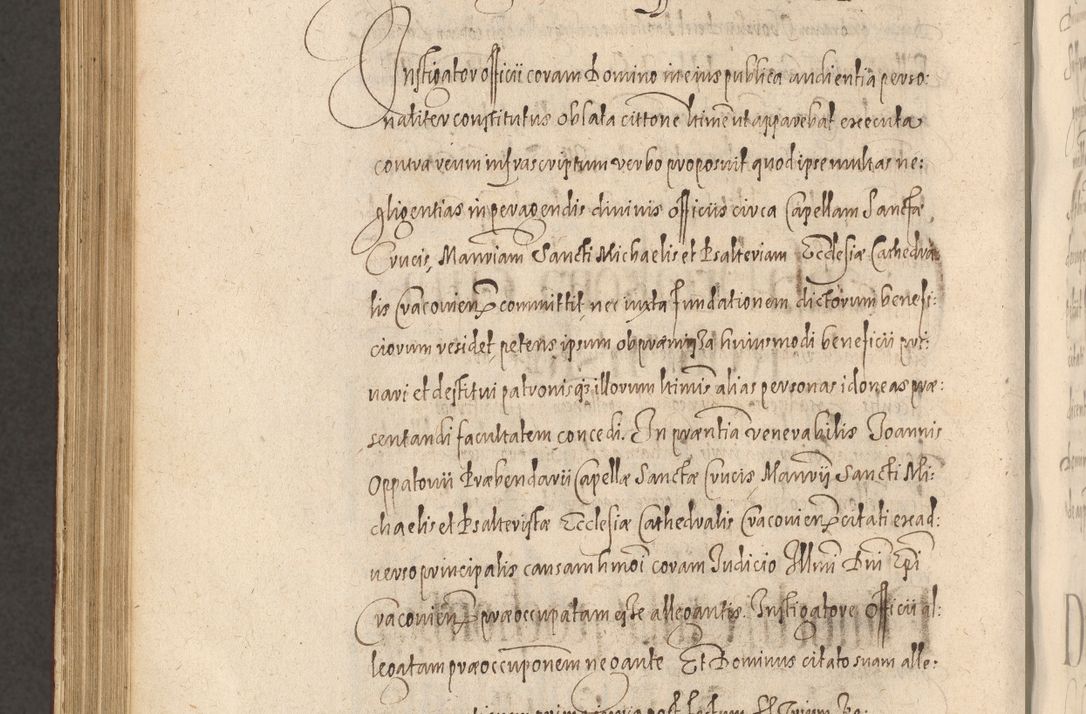 Instigator officii coram Domino in eius publica audientia perso:
naliter constitutus oblata cittõne ltimẽ ut apparebat executa
contra reum infrascriptum verbo proposuit quod ipse multas ne:
gligentias in peragendis divinis officiis circa Capellam Sanctæ
Crucis, Mansriam Sancti Michaelis et Psalteriam Ecclesiæ Cathedra
lis Cracovien committit, nec iuxta fundationem dictorum benefi:
ciorum residet petens ipsum ob præmissa huiusmodi beneficii pri:
vari et destitui patronisq illorum ltimis alias personas idoneas præ:
sentandi facultatem concedi. In præntia venerabilis Joannis
Oppatovii Præbendarii Capellæ Sanctæ Crucis, Mansrij Sancti Mi:
chaelis et Psalteristæ Ecclesiæ Cathedralis Cracovien citati ex ad:
verso principalis causam hmõi coram Judicio Illmi Dni Epi
Cracovien præoccupatam esse allegantis. Instigatore officii al:
legatam præoccuponem negante Et Dominus citato suam alle: